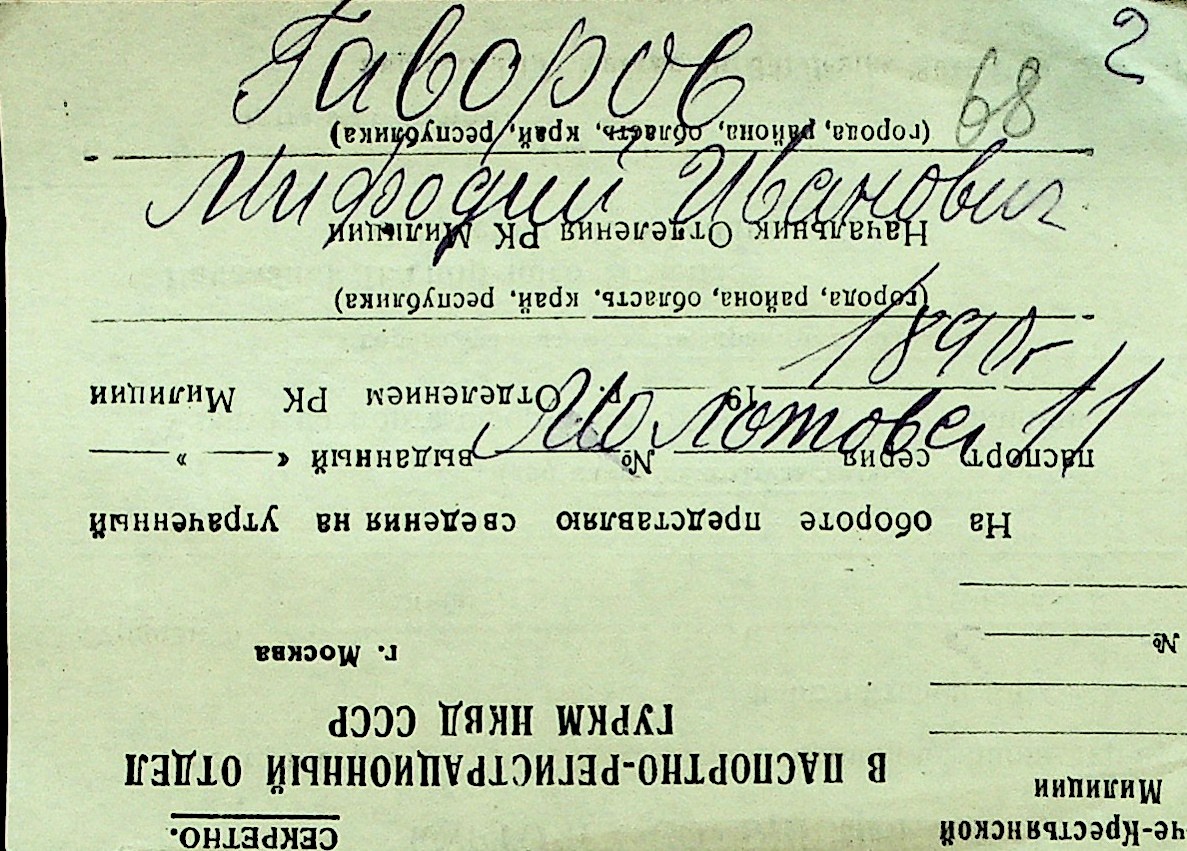 2
Гаворов
68
Мифодий Иванович
1890 г
Молотова 11
СЕКРЕТНО.
че-Крестьянской
Милиции
В ПАСПОРТНО-РЕГИСТРАЦИОННЫЙ ОТДЕЛ
ГУРКМ НКВД СССР
г. Москва
№
На обороте представляю сведения на утраченный
паспорт серия № выданный « »
19 г. Отделением РК Милиции
(города, района, область, край, республика)
Начальник Отделения РК Милиции
(города, района, область, край, республика)